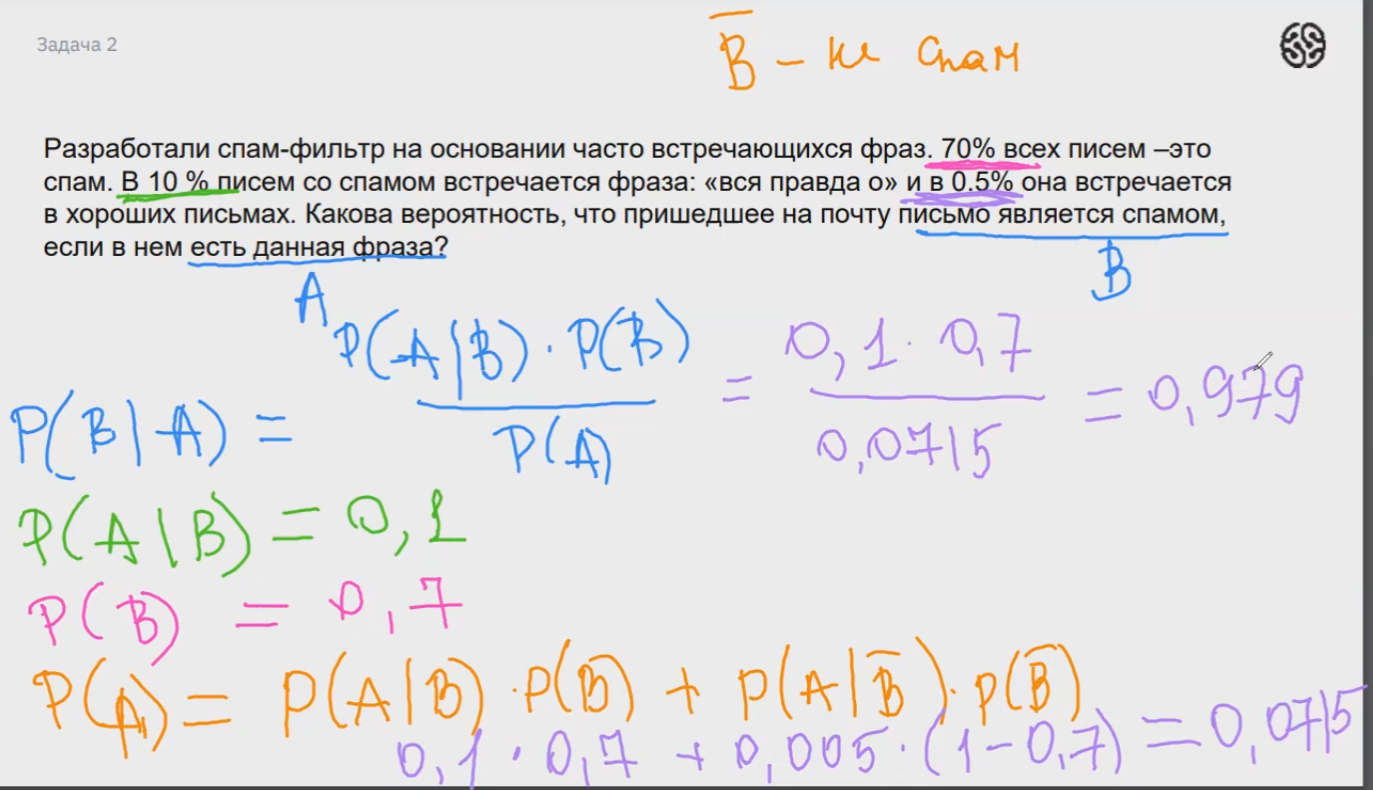 Задача 2
B̅ – не спам
Разработали спам-фильтр на основании часто встречающихся фраз. 70% всех писем –это
спам. В 10 % писем со спамом встречается фраза: «вся правда о» и в 0.5% она встречается
в хороших письмах. Какова вероятность, что пришедшее на почту письмо является спамом,
если в нем есть данная фраза?
A
B
P(B|A) = P(A|B) · P(B) / P(A) = 0,1 · 0,7 / 0,0715 = 0,979
P(A|B) = 0,1
P(B) = 0,7
P(A) = P(A|B) · P(B) + P(A|B̅) · P(B̅)
0,1 · 0,7 + 0,005 · (1-0,7) = 0,0715